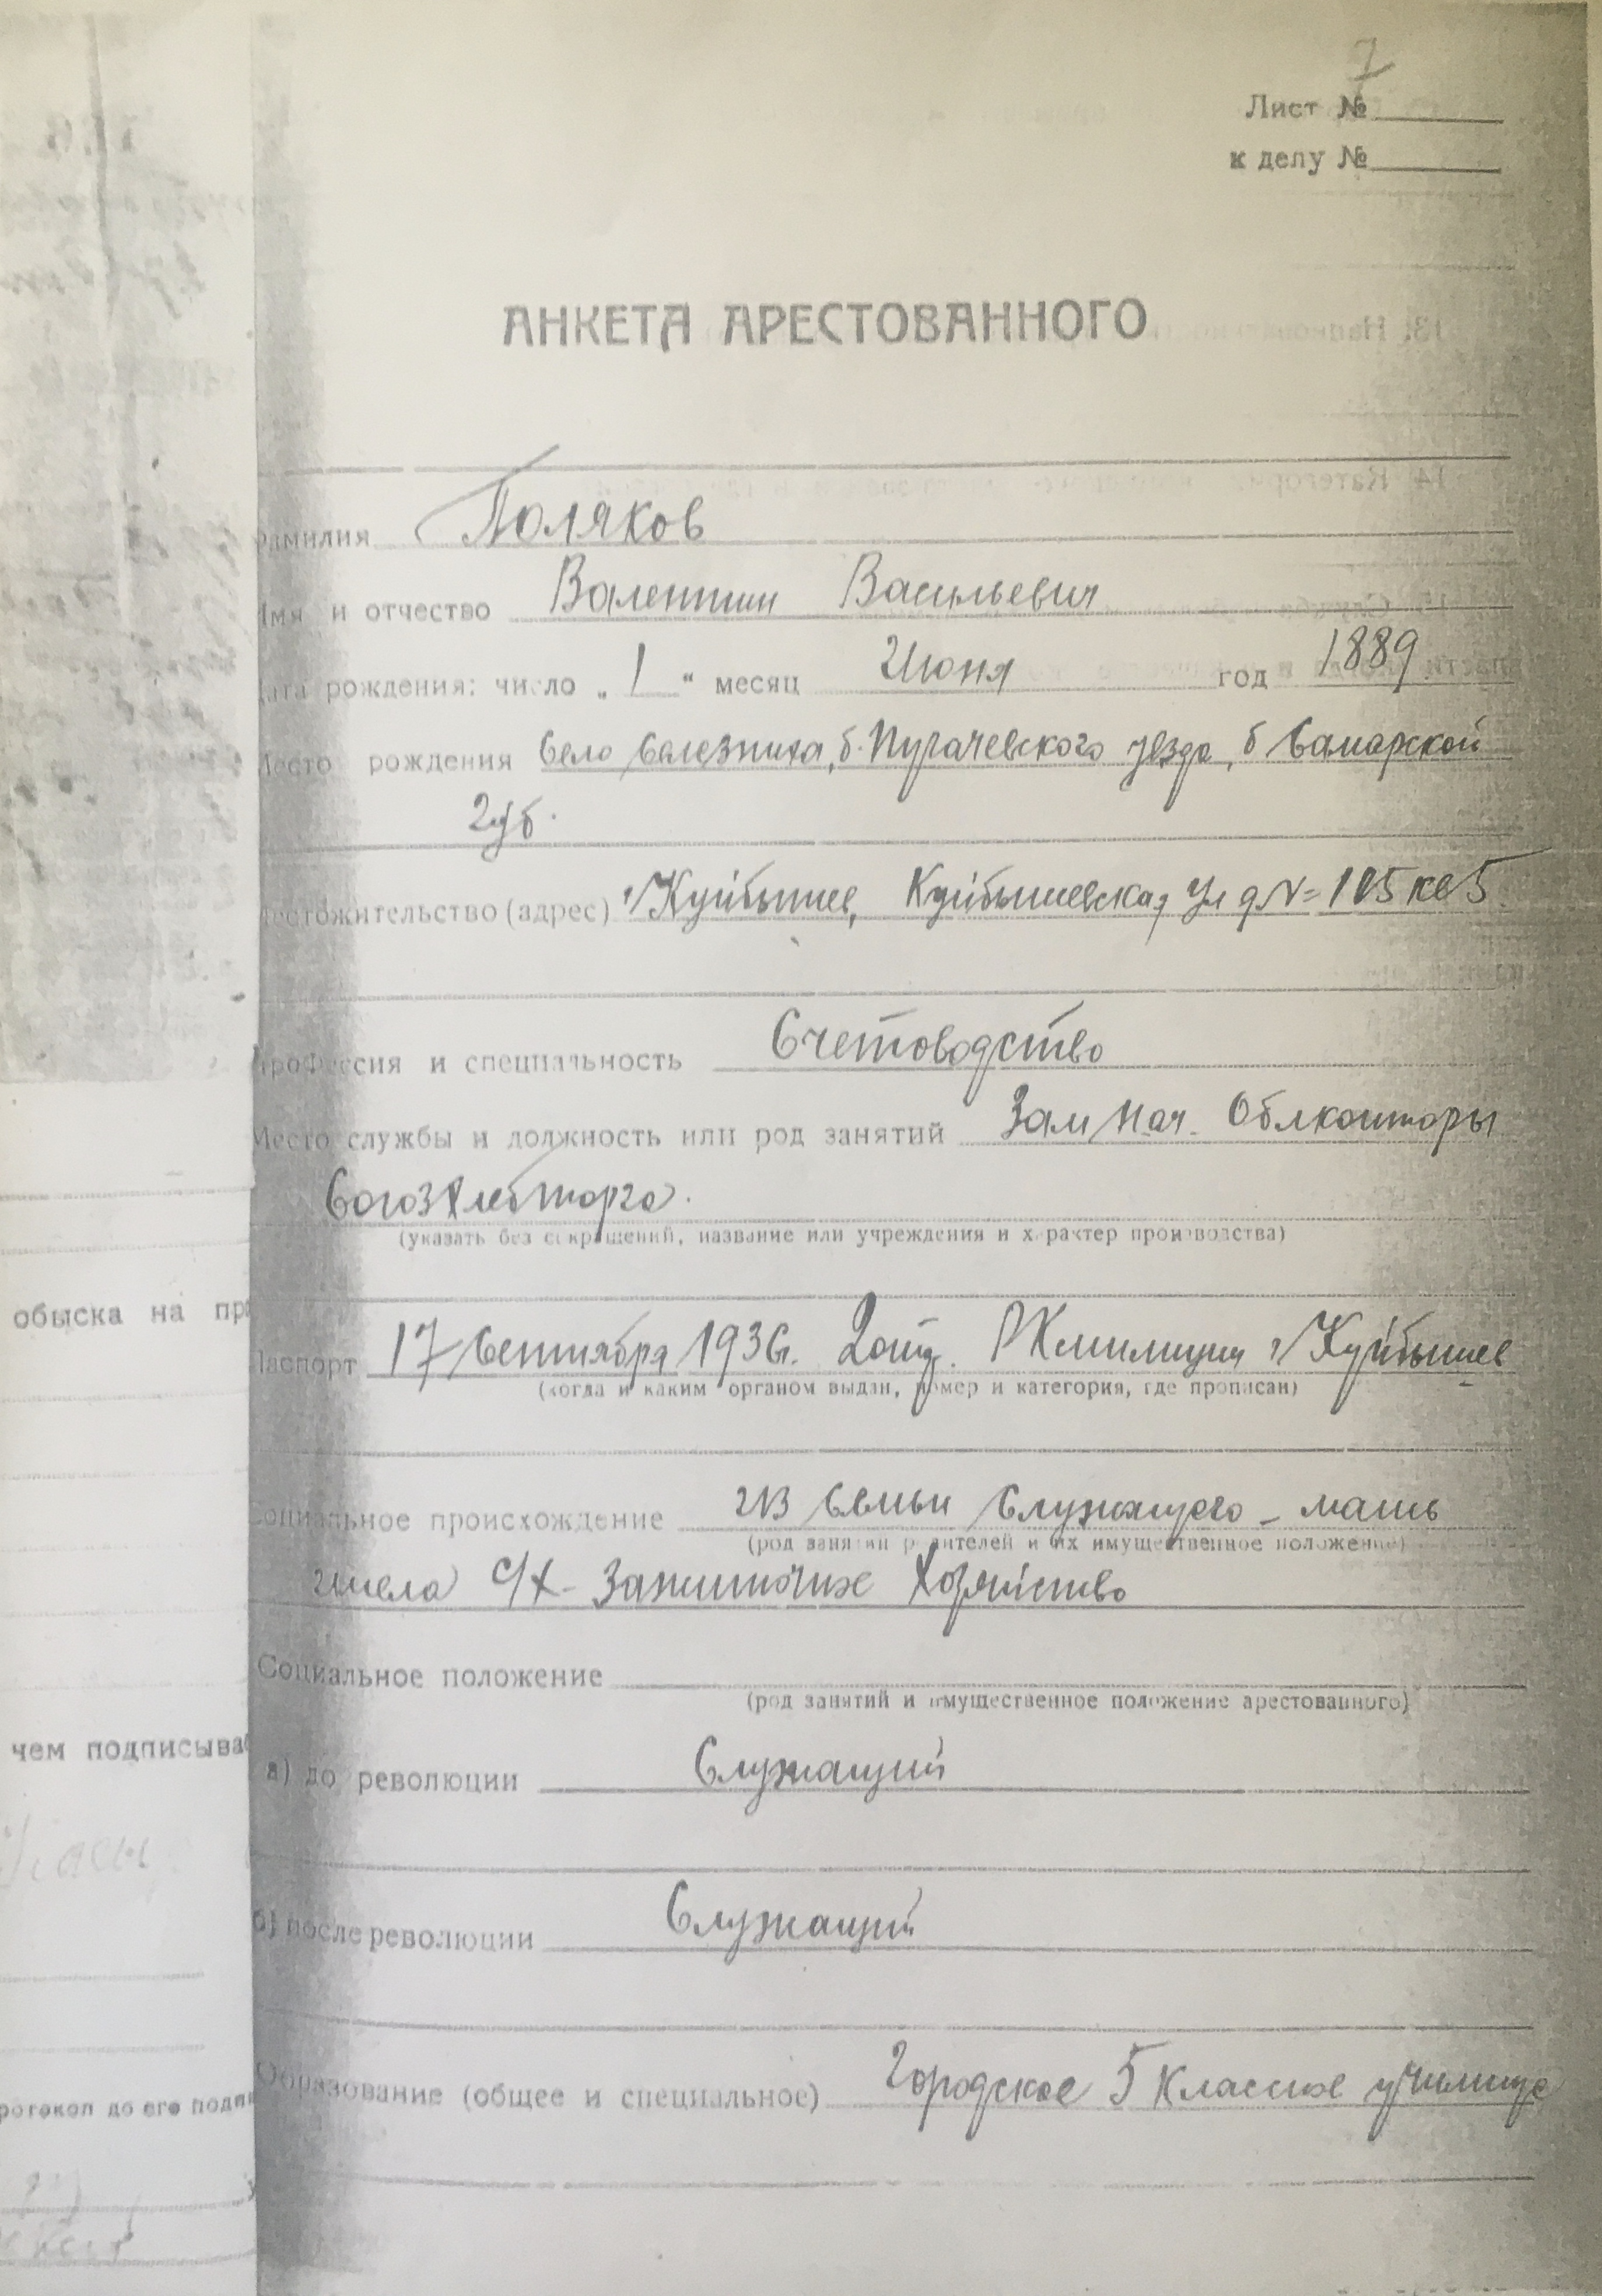 7
Лист №
к делу №
АНКЕТА АРЕСТОВАННОГО
Фамилия Поляков
Имя и отчество Валентин Васильевич
Дата рождения: число „ 1 “ месяц Июня год 1889
Место рождения Село Селезниха, б. Пугачевского уезда, б Самарской
губ.
Местожительство (адрес) г/Куйбышев, Куйбышевская ул д № 105 кв 5
Профессия и специальность Счетоводство
Место службы и должность или род занятий Зам нач. Облконторы
Союзхлебторга.
(указать без сокращений, название или учреждения и характер производства)
Паспорт 17/Сентября 1936г. 2 отд. РКмилиции г/Куйбышев
(когда и каким органом выдан, номер и категория, где прописан)
Социальное происхождение из семьи служащего - мать
(род занятий родителей и их имущественное положение)
имела с/х- зажиточное хозяйство
Социальное положение
(род занятий и имущественное положение арестованного)
а) до революции Служащий
б) после революции Служащий
Образование (общее и специальное) Городское 5 классное училище
обыска на
чем подписыва
протокол до его подпи